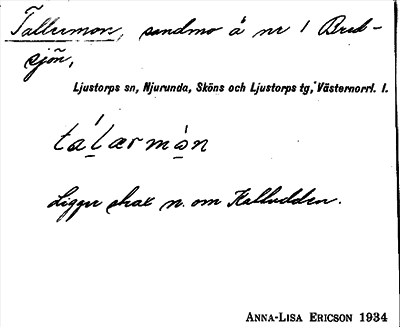 Tallermon, sandmo å nr 1 Bred-
sjön,
Ljustorps sn, Njurunda, Sköns och Ljustorps tg, Västernorrl. l.
tálærmòn
Ligger strax n. om Kalludden.
ANNA-LISA ERICSON 1934